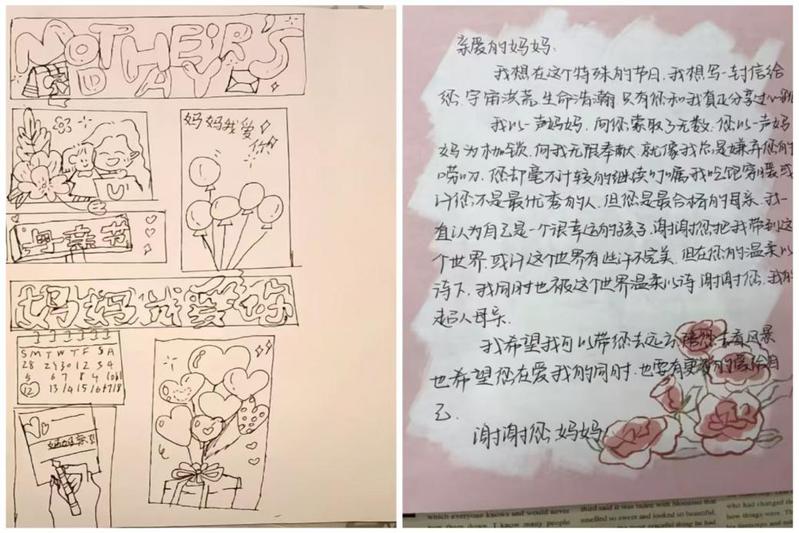 MOTHER'S
DAY
妈妈我爱
你
母亲节
妈妈我爱你
S M T W T F S A
28 29 30 1 2 3 4
5 6 7 8
12 13 14 15 16 17 18
亲爱的妈妈:
我想在这个特殊的节日,我想写一封信给
您,宇宙洪荒,生命浩瀚,只有您和我真正分享过心跳
我以一声妈妈,向您索取了无数,您以一声妈
妈为枷锁,向我无限奉献,就像我总是嫌弃您的
唠叨,您却毫不计较的继续叮嘱我吃饱穿暖或
许您不是最优秀的人,但您是最合格的母亲,我一
直认为自己是一个很幸运的孩子,谢谢您把我带到这
个世界,或许这个世界有些许不完美,但在您的温柔以
待下,我同时也被这个世界温柔以待,谢谢您,我的
超人母亲.
我希望我可以带您去远方,陪您去看风景
也希望您在爱我的同时,也要有更多的爱给自
己.
谢谢您,妈妈
which everyone knows and would never
I know many people
third said it was laden with blossoms that
smelled so sweet and looked so beautiful,
who had changed the
how things were. The